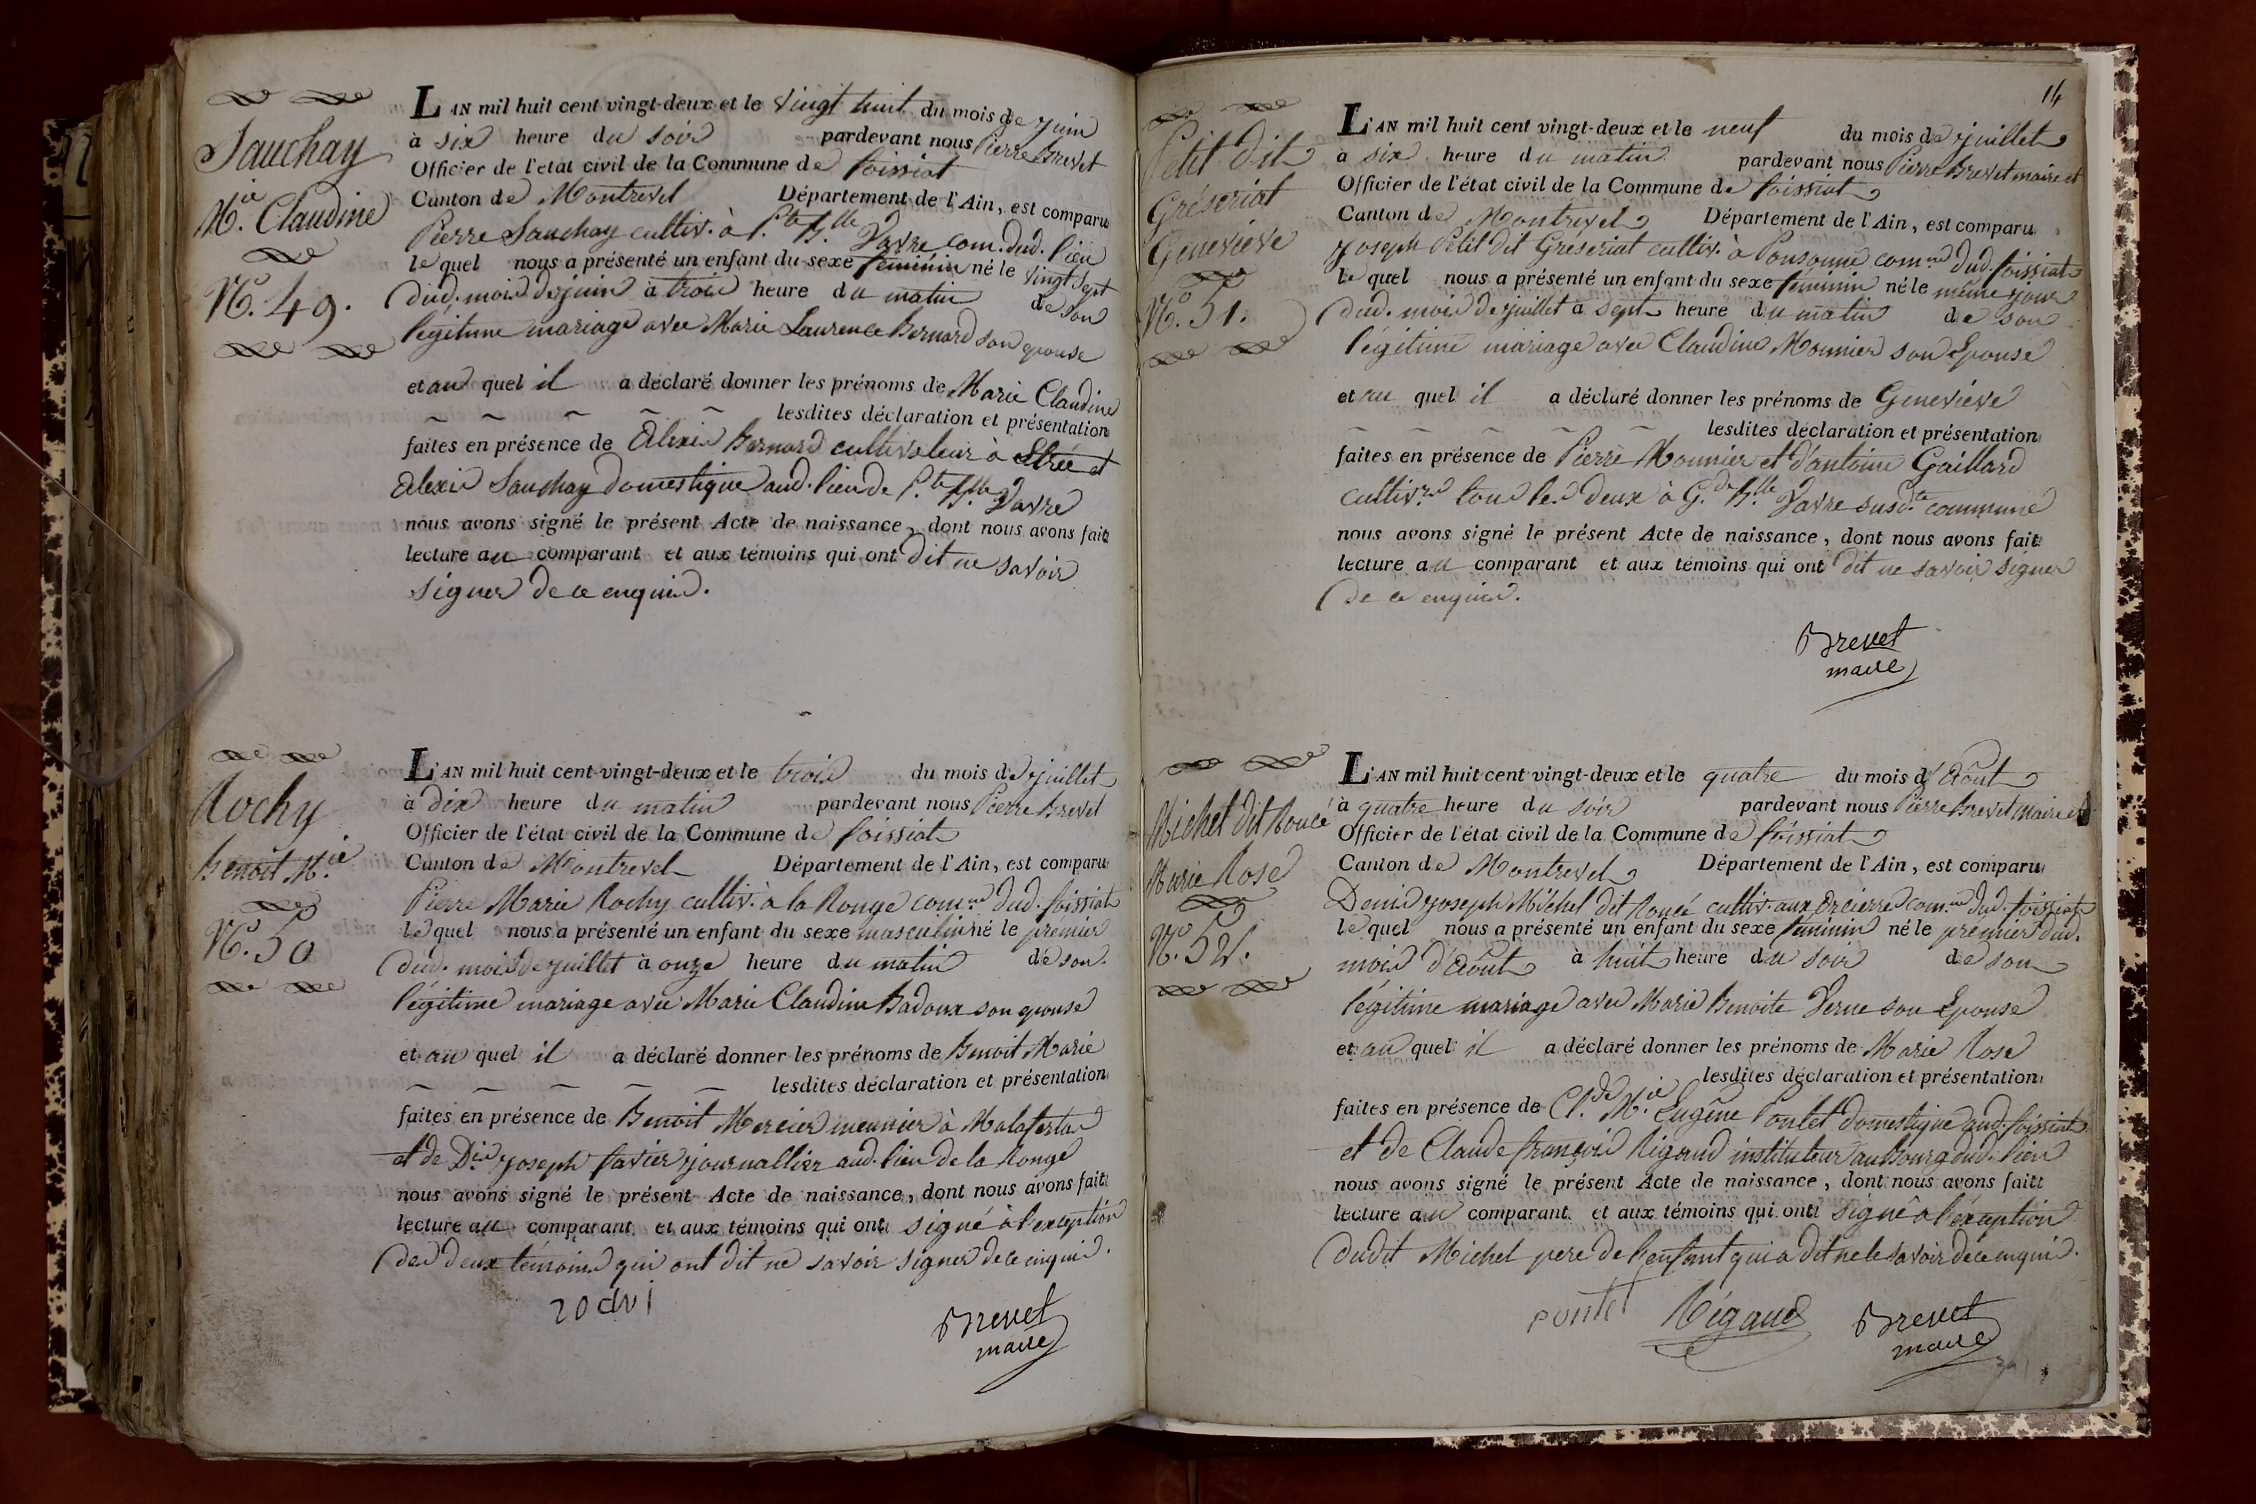 Sauchay
M.ie Claudine
N.o 49.
L'AN mil huit cent vingt-deux et le vingt huit du mois de juin
à six heure du soir pardevant nous Pierre Brevet
Officier de l'état civil de la Commune de foissiat
Canton de Montrevel Département de l'Ain, est comparu
Pierre Sauchay cultiv. à P.te B.lle Vavre com. dud. lieu
le quel nous a présenté un enfant du sexe feminin né le vingt sept
dud. mois de juin à trois heure du matin de son
légitime mariage avec Marie Laurence Bernard son epouse
et au quel il a déclaré donner les prénoms de Marie Claudine
lesdites déclaration et présentation
faites en présence de Alexis Bernard cultivateur à Etrée et
Alexis Sauchay domestique aud. lieu de P.te B.lle Vavre
nous avons signé le présent Acte de naissance, dont nous avons fait
lecture au comparant et aux témoins qui ont dit ne savoir
signer de ce enquis.
Rochy
Benoit M.ie
N.o 50
L'AN mil huit cent vingt-deux et le trois du mois de juillet
à dix heure du matin pardevant nous Pierre Brevet
Officier de l'état civil de la Commune de foissiat
Canton de Montrevel Département de l'Ain, est comparu
Pierre Marie Rochy cultiv. à la Ronge com.ne dud. foissiat
le quel nous a présenté un enfant du sexe masculin né le premier
dud. mois de juillet à onze heure du matin de son
légitime mariage avec Marie Claudine Badoux son epouse
et au quel il a déclaré donner les prénoms de Benoit Marie
lesdites déclaration et présentation
faites en présence de Benoit Mercier meunier à Malatertra
et de D.is joseph favier journallier aud. lieu de la Ronge
nous avons signé le présent Acte de naissance, dont nous avons fait
lecture au comparant et aux témoins qui ont signé à l'exception
des deux témoins qui ont dit ne savoir signer de ce enquis.
Brevet
maire
14
Petit dit
Gréseriat
Geneviéve
N.o 51.
L'AN mil huit cent vingt-deux et le neuf du mois de juillet
à six heure du matin pardevant nous Pierre Brevet maire et
Officier de l'état civil de la Commune de foissiat
Canton de Montrevel Département de l'Ain, est comparu
joseph Petit dit Gréseriat cultiv. à Ponsonne com.ne dud. foissiat
le quel nous a présenté un enfant du sexe feminin né le même jour
dud. mois de juillet à sept heure du matin de son
légitime mariage avec Claudine Monnier son Epouse
et au quel il a déclaré donner les prénoms de Geneviéve
lesdites déclaration et présentation
faites en présence de Pierre Monnier et d'antoine Gaillard
cultiv.rs tous les deux à G.de B.lle Vavre susd.te commune
nous avons signé le présent Acte de naissance, dont nous avons fait
lecture au comparant et aux témoins qui ont dit ne savoir signer
de ce enquis.
Brevet
maire
Michel dit Roucé
Marie Rose
N.o 52.
L'AN mil huit cent vingt-deux et le quatre du mois d'Août
à quatre heure du soir pardevant nous Pierre Brevet Maire et
Officier de l'état civil de la Commune de foissiat
Canton de Montrevel Département de l'Ain, est comparu
Denis joseph Michel dit Roucé cultiv. aux Orcierres com.ne dud. foissiat
le quel nous a présenté un enfant du sexe feminin né le premier dud.
mois d'Août à huit heure du soir de son
légitime mariage avec Marie Benoite Verne son Epouse
et au quel il a déclaré donner les prénoms de Marie Rose
lesdites déclaration et présentation
faites en présence de Cl.de M.ie Eugêne Pontet domestique aud. foissiat
et de Claude françois Rigaud instituteur au Bourg dud. lieu
nous avons signé le présent Acte de naissance, dont nous avons fait
lecture au comparant et aux témoins qui ont signé à l'exception
dudit Michel pere de l'enfant qui a dit ne le savoir de ce enquis.
pontet Rigaud Brevet
maire